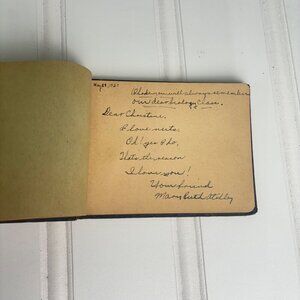 May 29, 1935
I hope you will always remember
our dear biology class.
Dear Christine,
I love nuts,
Oh! yes I do,
That's the reason
I love you!
Your friend
Mary Ruth